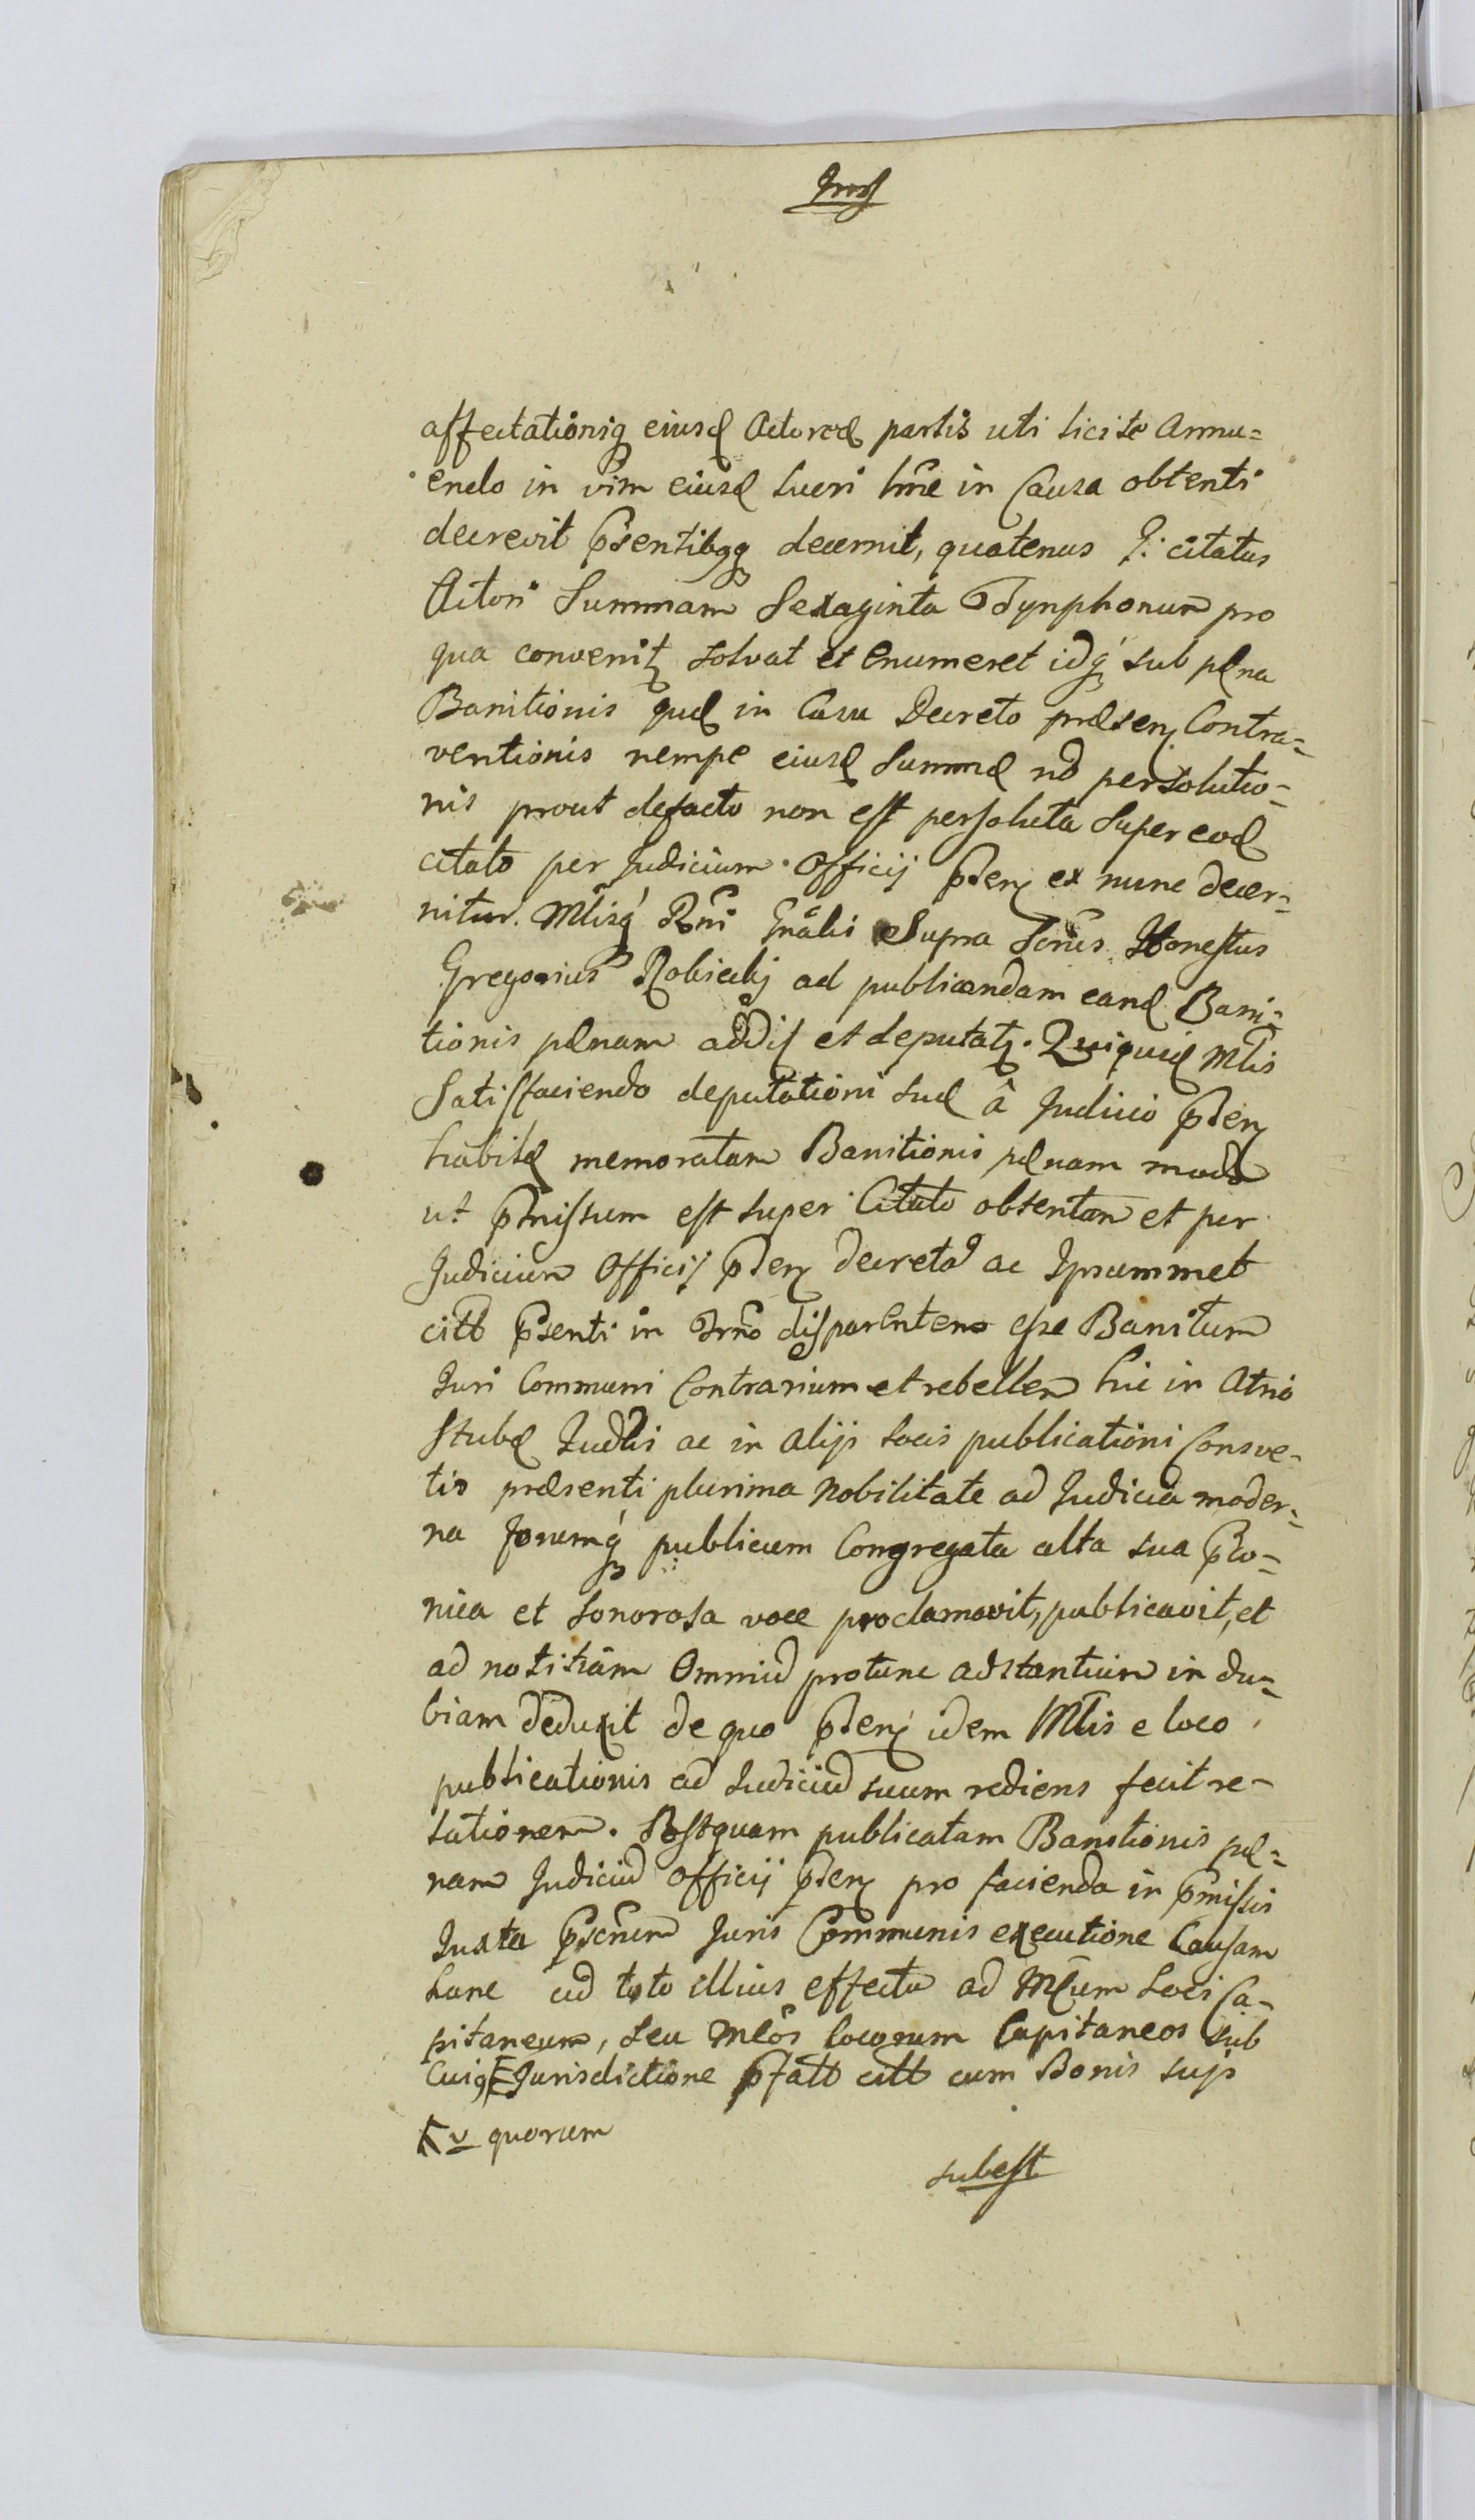 affectationiq eiusd Actoreæ partis uti licite Annu=
endo in vim eiusd lucri hinc in Causa obtenti
decrevit pñsentibqq decernit, quatenus I: citatus
Actori Summam Sexaginta Tynphonum pro
qua convenit solvat et enumeret idq sub pæna
Banitionis quæ in Casu Decreto præsen Contra=
ventionis nempe eiusd Summæ nō persolutio=
nis prout defacto non est persoluta Super eod
citato per Judicium Officij pñsen ex nunc decer=
nitur. Mtlisq Rñi Gnãlis Supra Scrius Honestus
Gregorius Robicki ad publicandam eand Bani=
tionis pænam addis et deputat. Quiquid Mtlis
Satisfaciendo deputationi suæ â Judicio pñsen
habitæ memoratam Banitionis pænam modo
ut pmissum est super Citato obtentam et per
Judicium Officij pñsen decretã ac Ipsummet
citt pñsenti in Trño disparentem esse Banitum
Iuri Communi Contrarium et rebellem hic in Atrio
Stubæ Judlis ac in alijs locis publicationi Consve=
tis præsenti plurima Nobilitate ad Judicia moder=
na forumq publicum Congregata alta sua pco=
nica et sonorosa voce proclamavit, publicavit, et
ad notitiam Omniũ protunc adstantium in du=
biam deduxit de quo pñsen idem Mtlis e loco
publicationis ad Judiciũ suum rediens fecit re=
lationem. Postquam publicatam Banitionis pæ=
nam Judiciũ Officij pñsen pro facienda in pmissis
Iuxta pscrium Juris Communis executione Causam
hanc cũ toto illius effectu ad Mcum Loci Ca=
pitaneum, seu Mcos locorum Capitaneos sub
Cuiq Jurisdictione pfatt citt cum Bonis suis
v quorum
subest